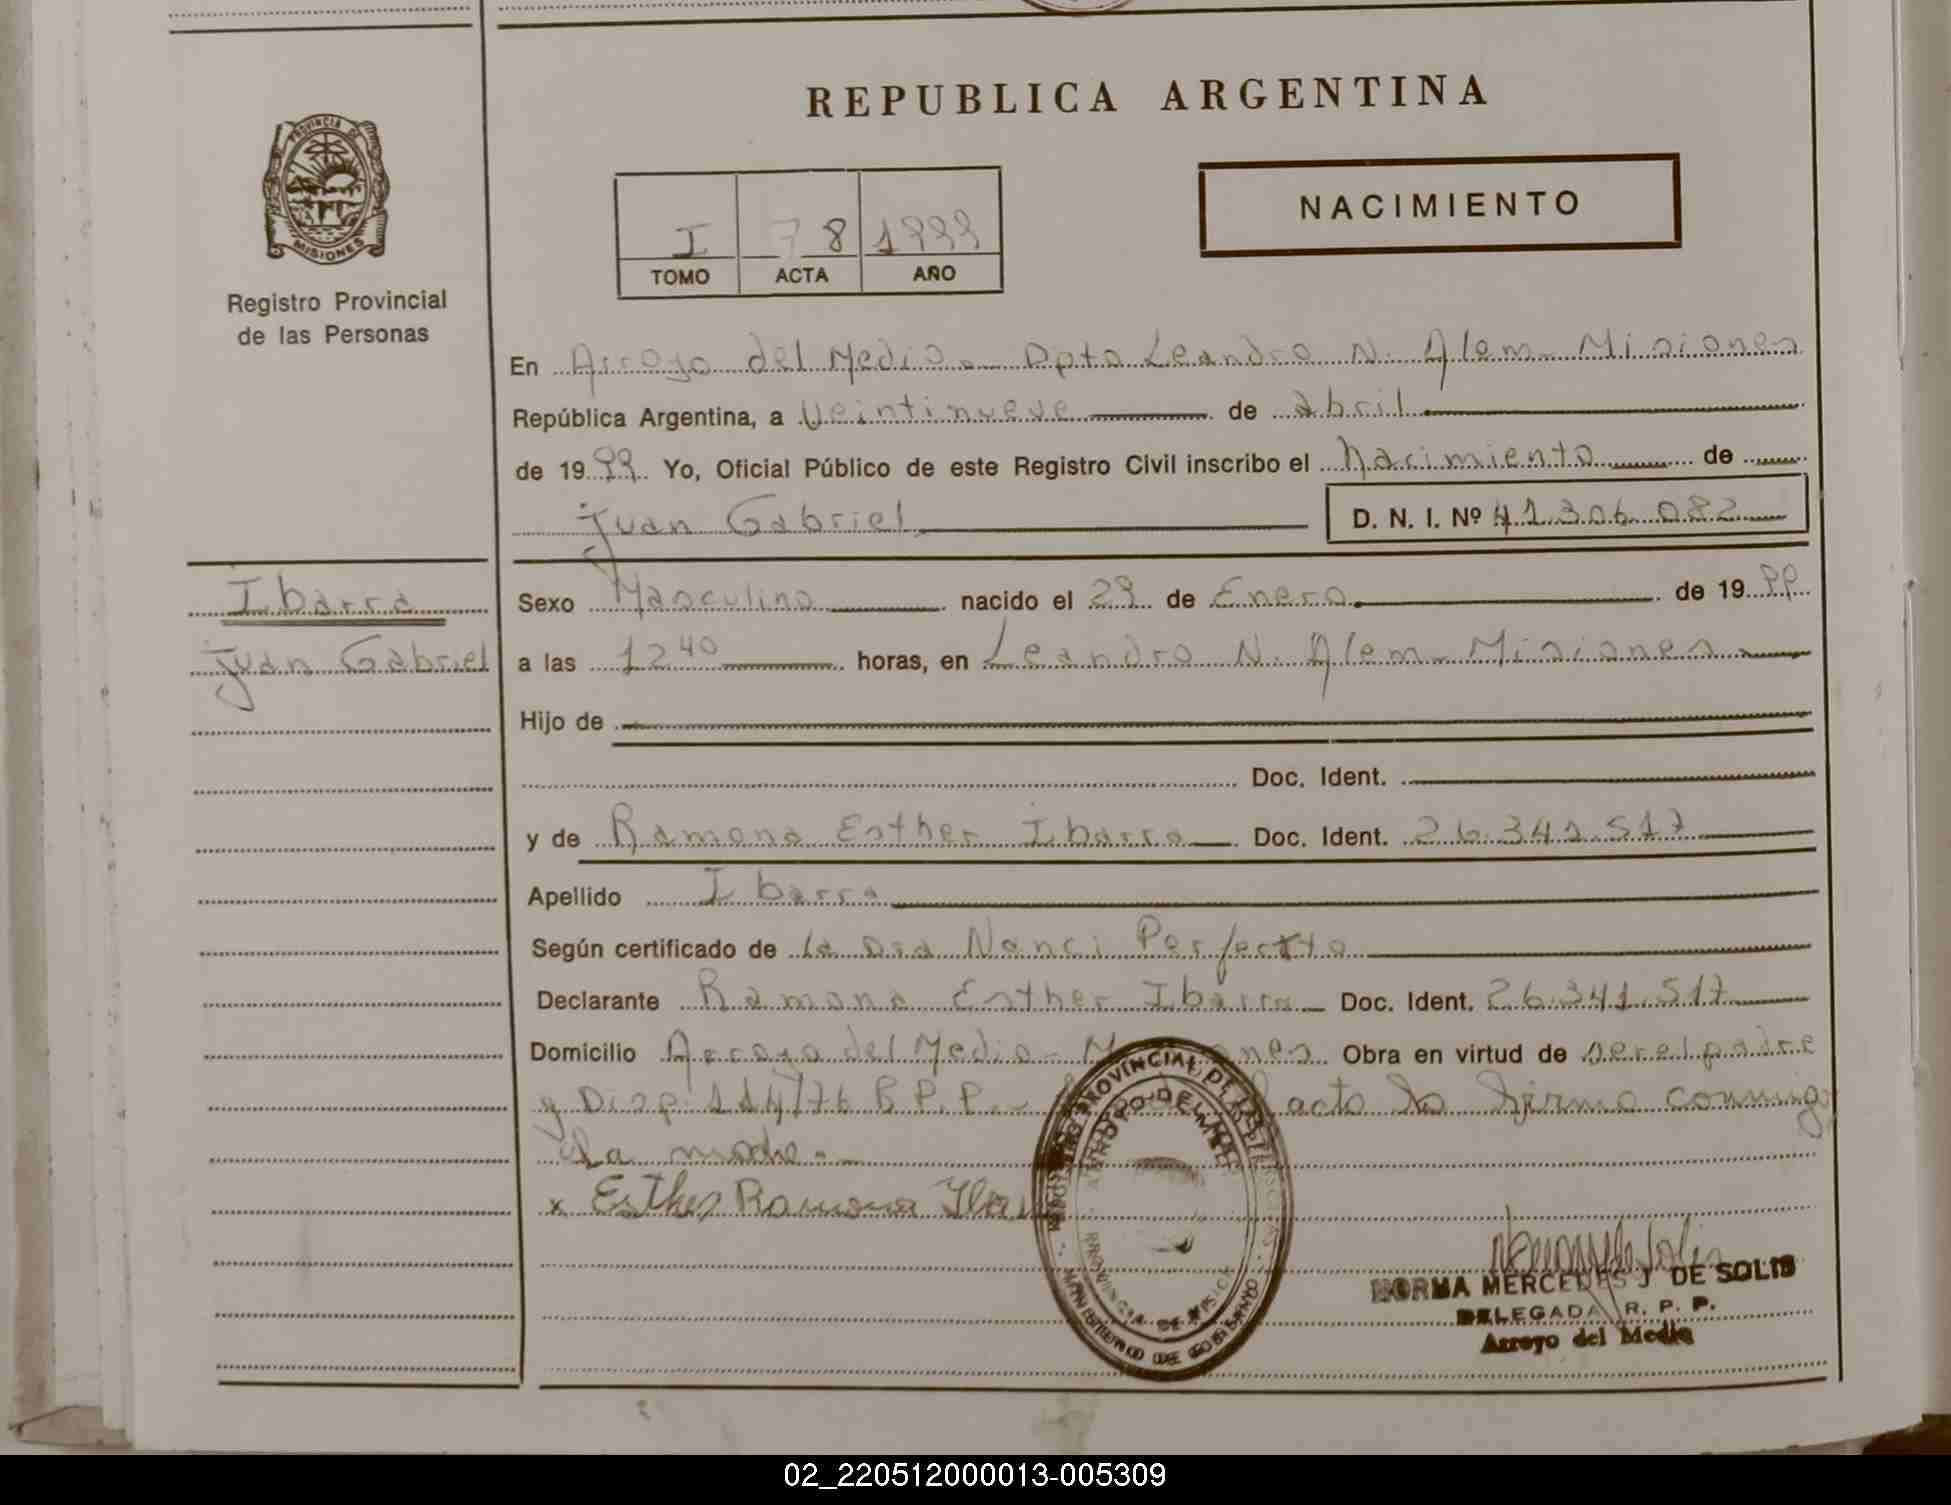 REPUBLICA ARGENTINA
PROVINCIA DE
MISIONES
Registro Provincial
de las Personas
I 78 1999
TOMO ACTA AÑO
NACIMIENTO
En Arroyo del Medio - Dpto Leandro N. Alem - Misiones
República Argentina, a Veintinueve de abril
de 1999 Yo, Oficial Público de este Registro Civil inscribo el Nacimiento de
Juan Gabriel D. N. I. Nº 41.306.082
Ibarra
Juan Gabriel
Sexo Masculino nacido el 29 de Enero de 1999
a las 12 40 horas, en Leandro N. Alem - Misiones
Hijo de
Doc. Ident.
y de Ramona Esther Ibarra Doc. Ident. 26.341.517
Apellido Ibarra
Según certificado de la Dra Nanci Perfecto
Declarante Ramona Esther Ibarra Doc. Ident. 26.341.517
Domicilio Arroyo del Medio - Obra en virtud de ser el padre
y Disp. 114/76 R.P.P. - acto lo firma conmigo
la madre.-
x Esther Ramona
PROVINCIAL DE LAS
NORMA MERCEDES J DE SOLIS
DELEGADA R. P. P.
Arroyo del Medio
02_220512000013-005309